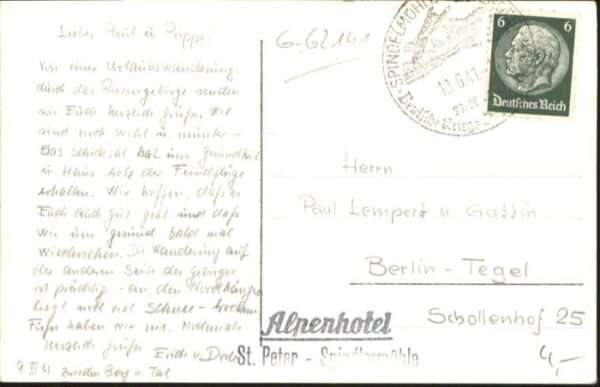 Liebe Paul u. Puppe!
Von einer Urlaubswanderung
durch das Riesengebirge senden
wir Euch herzliche Grüße. Wir
sind noch wohl u. munter –
Das Schicksal hat uns gesund
u. Haus trotz der Feindflüge
erhalten. Wir hoffen, daß es
Euch auch gut geht und daß
wir uns gesund bald mal
wiedersehen. Die Wanderung auf
der anderen Seite des Gebirges
ist prächtig – an den
liegt noch viel Schnee –
Füße haben wir nie. Nochmals
herzliche Grüße Erich u. Dorle
9. VI 41 zwischen Berg u. Tal
6-62141
SPINDELMÜHLE
10.6.41
Deutsche Kriegs
6 6
Deutsches Reich
Herrn
Paul Lempert u Gattin
Berlin - Tegel
Schollenhof 25
Alpenhotel
St. Peter - Spindlermühle
4,-